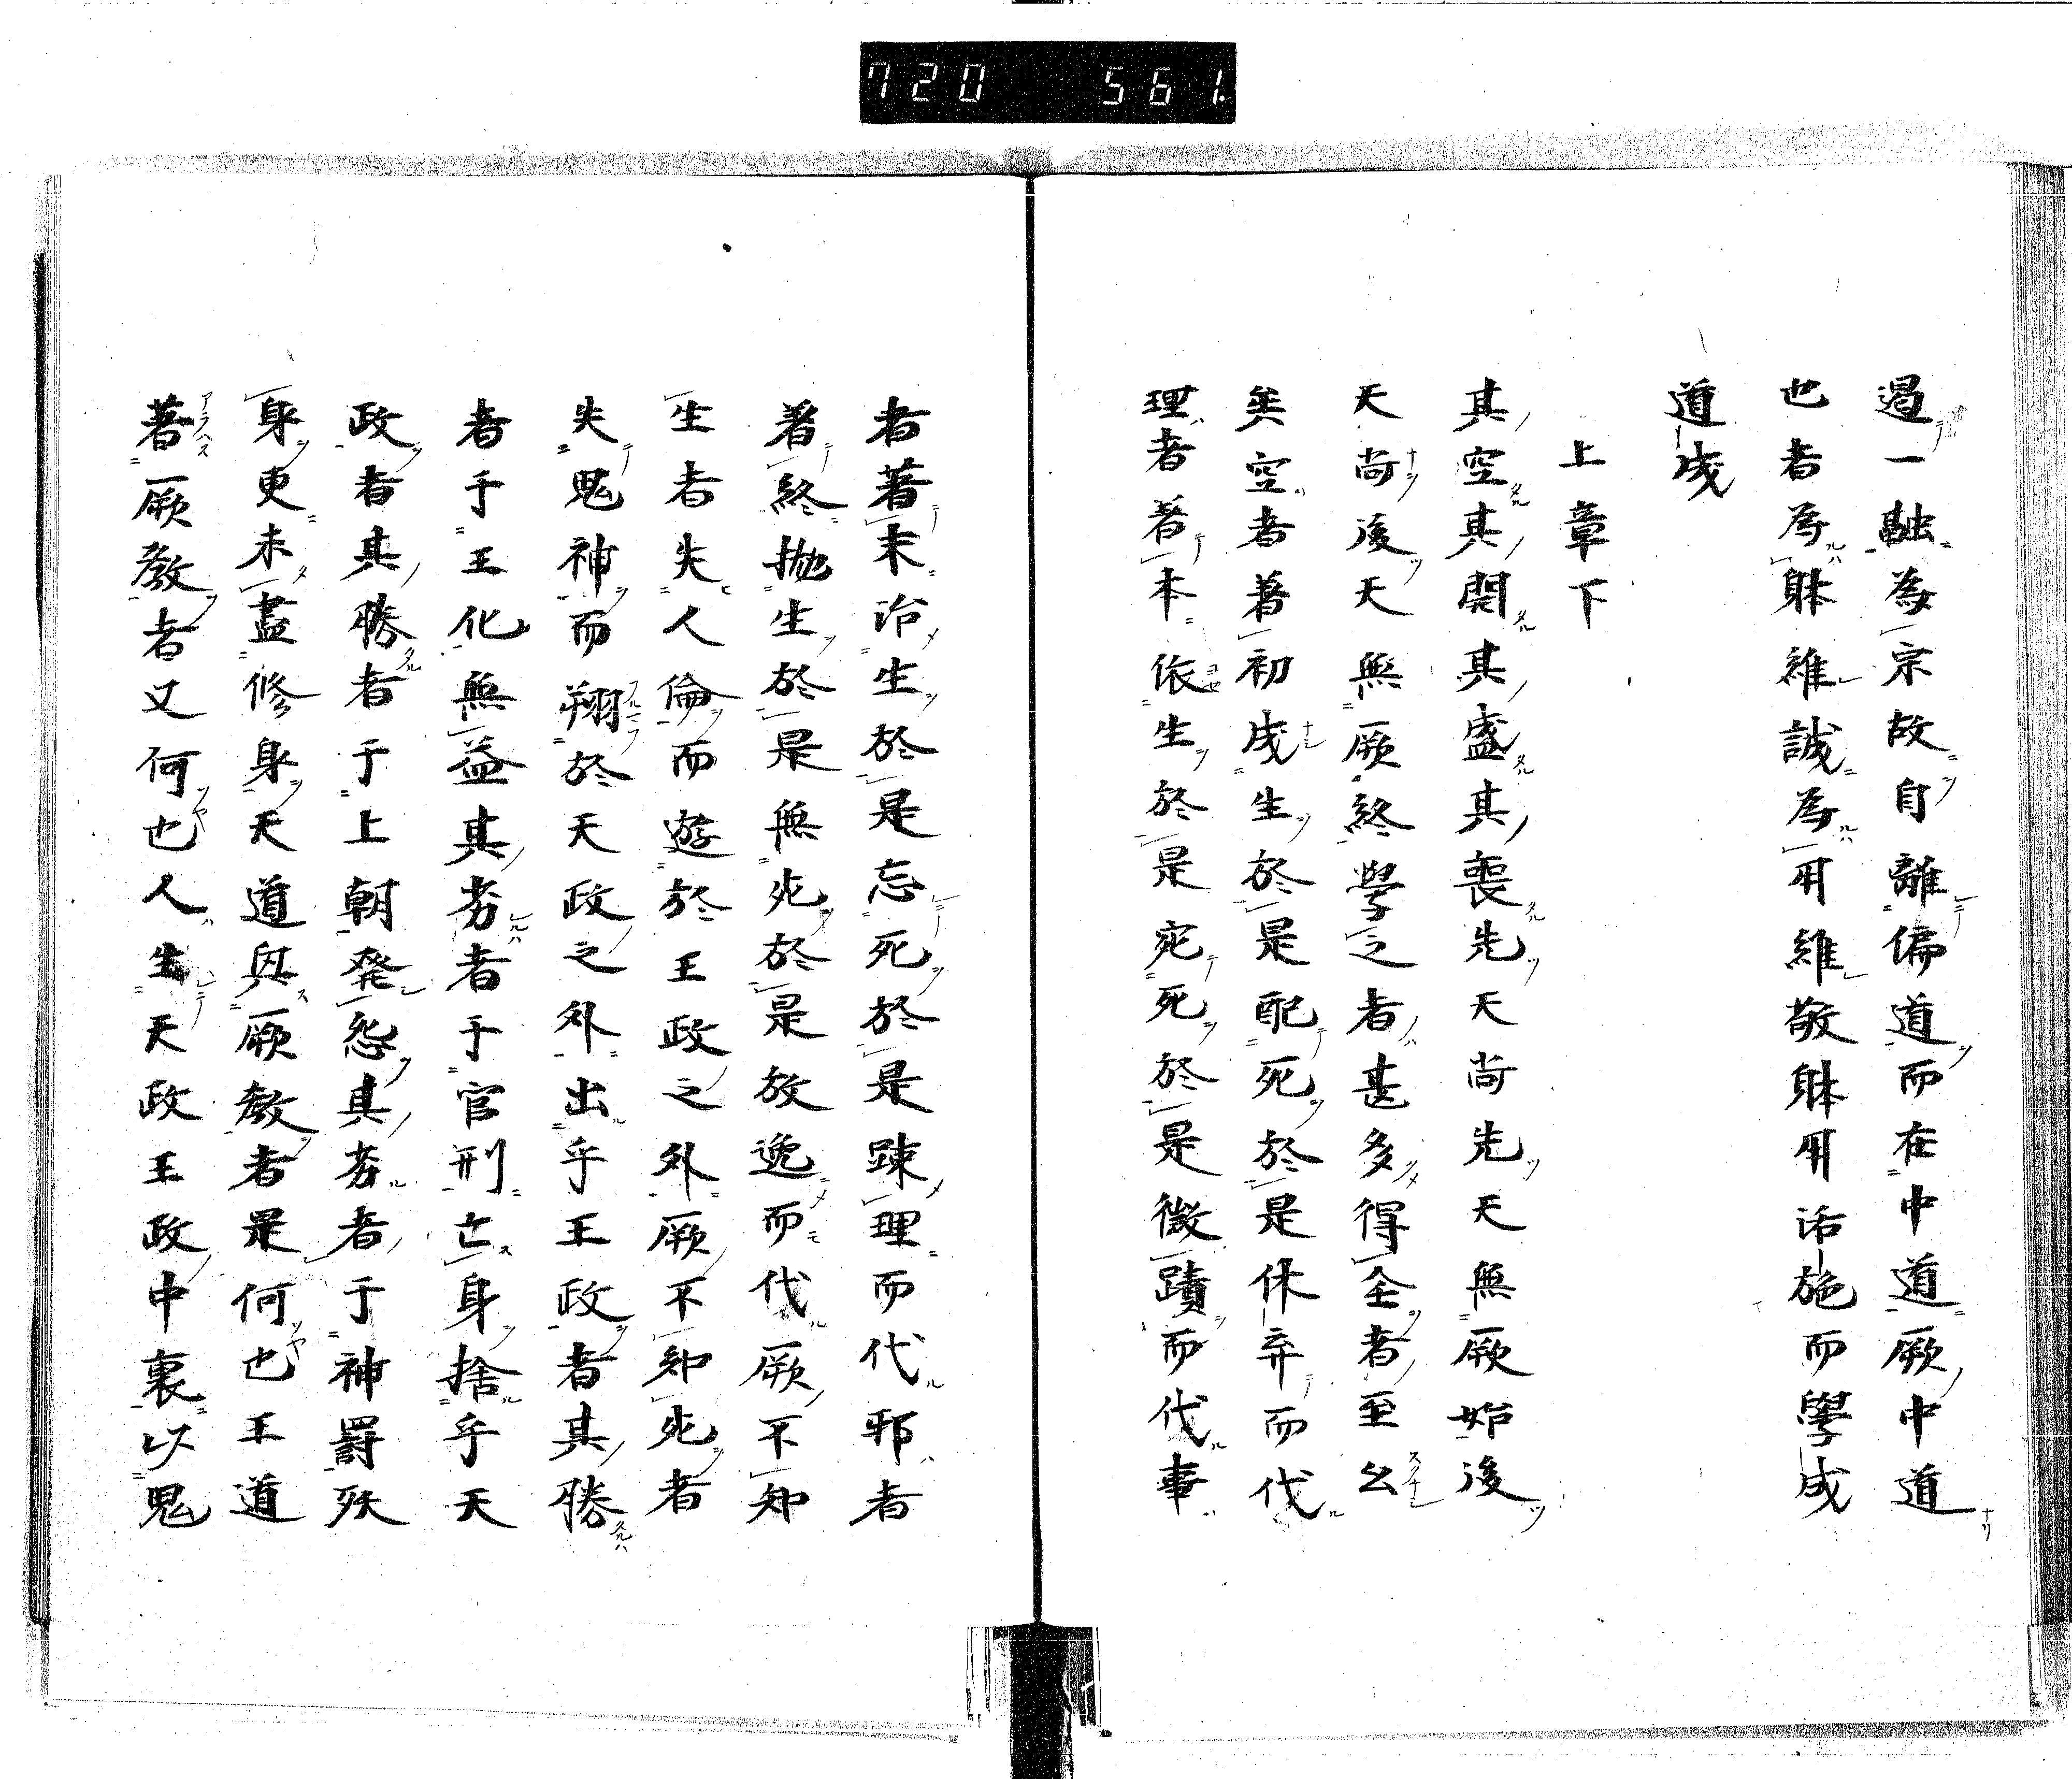 720 561.
過一融為宗故自離偏道而在中道厥中道
也者為躰維誠為用維敬躰用活施而學成
道成
上章下
其空其開其盛其喪先天尚先天無厥始後
天尚後天無厥終學之者甚多得全者至幺
矣空者著初成生於是配死於是休弃而代
理者著本依生於是宛死於是徵蹟而代事
者著末治生於是忘死於是踈理而代邪者
著終拋生於是無死於是放逸而代厥不知
生者失人倫而遊於王政之外厥不知死者
失鬼神而翔於天政之外出乎王政者其勝
者于王化無益其劣者于官刑亡身捨乎天
政者其勝者于上朝発怨其劣者于神罸殀
身更未盡修身天道與厥教者是何也王道
著厥教者又何也人生天政王政中裏以鬼